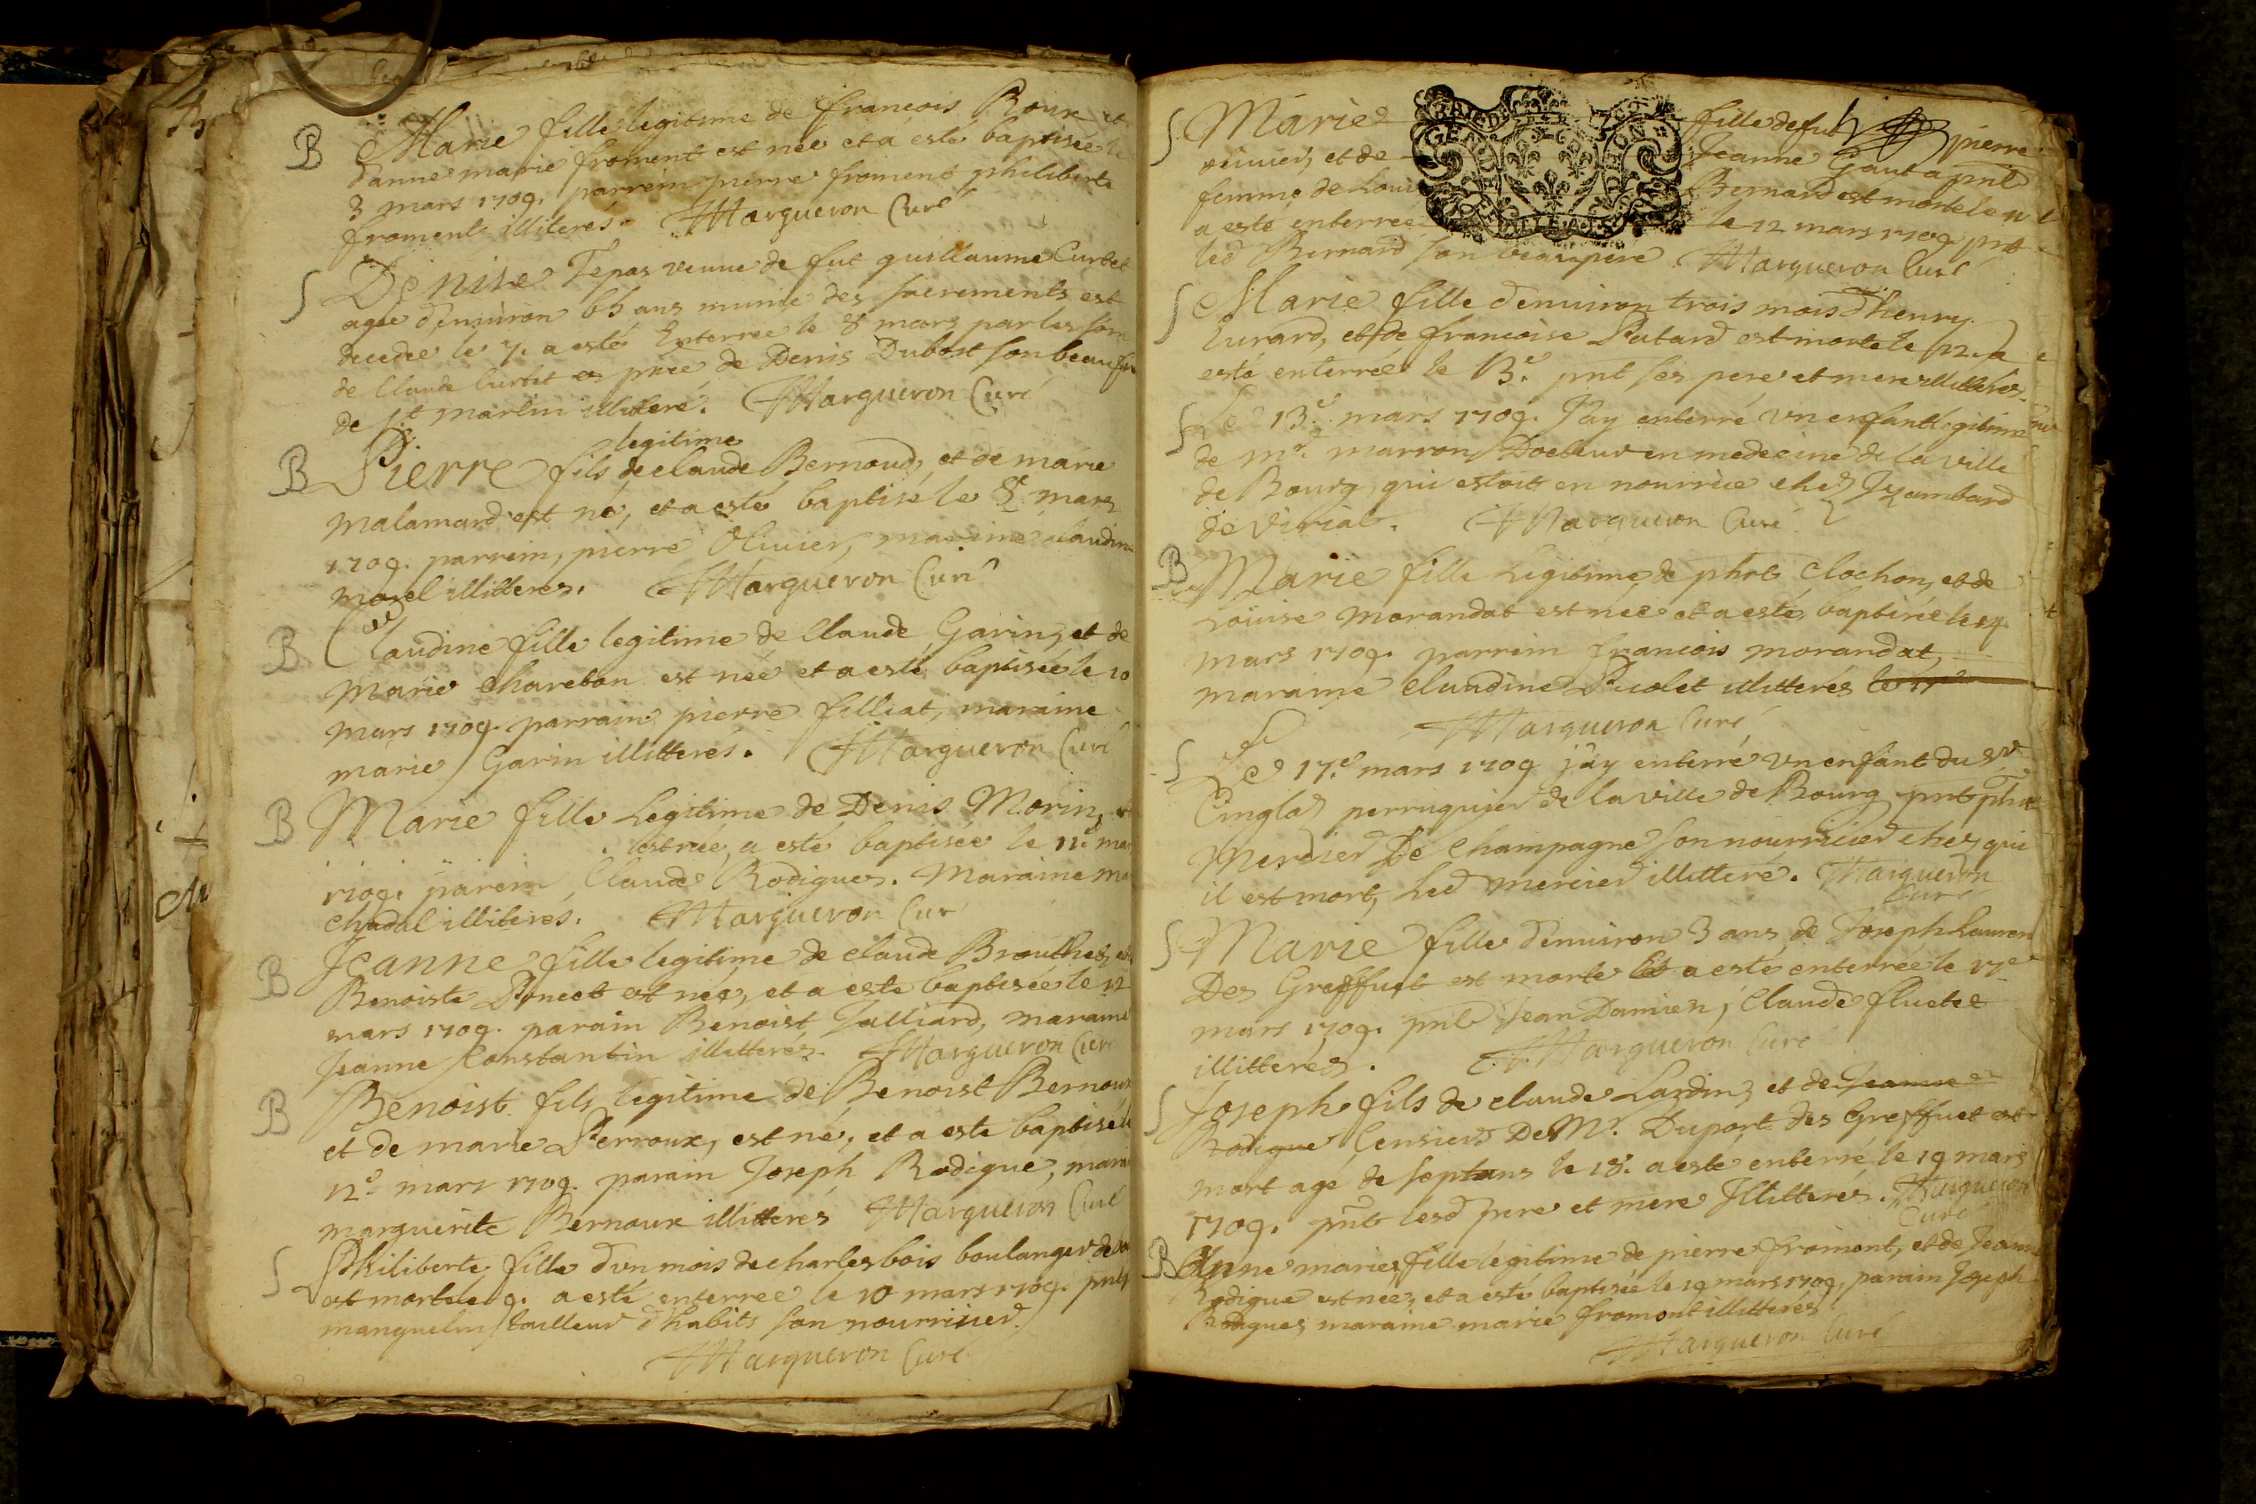 B Marie fille legitime de francois Roux et
d'anne marie froment est neé et a esté baptisée le
3 mars 1709. parrein pierre froment philiberte
froments illiterés. Margueron Curé
S Denise Tepas veuue de fut guillaume Curtet
agée d'enuiron 65 ans munie des sacrements est
decedée le 7. a esté Enterrée le 8 mars par les soin
de Claude Curtet et priée de Denis Dubost son beau fre
de St martin illiteré. Margueron Curé
legitime
B Pierre fils de claude Bernoud, et de marie
malamard est né, et a esté baptisé le 8e mars
1709. parrein, pierre Olivier, maraine claudine
morel illitteres. Margueron Curé
B Claudine fille legitime de Claude Garin, et de
Marie Charebon est neé et a esté baptisée le 10
mars 1709. parrain pierre filliat, maraine
marie Garin illitterés. Margueron Curé
B Marie fille Legitime de Denis Morin, et
est neé, a esté baptisée le 11e mar
1709. parein Claude Rodigues. Maraine ma
Chadal illiterés. Margueron Cur
B Jeanne fille legitime de claude Brouthet, et
Benoiste Poncet est neé, et a este baptisée le 12
mars 1709. parain Benoist Julliard, maraine
Jeanne Constantin illitteres. Margueron Curé
B Benoist fils legitime de Benoist Bernoux
et de marie Perroux, est né, et a este baptisé le
12e mars 1709. parain Joseph Rodigue, marai
marguerite Bernoux illitterés Margueron Curé
S Philiberte fille d'vn mois de charles bois boulanger de
est morte le 9. a esté enterrée le 10 mars 1709. pnt
manguelin tailleur d'habits son nourricier.
Margueron Curé
S Marie fille de fut pierre
oiuier, et de Jeanne Gaut a pnt
femme de Loui Bernard est morte le 11
a este enterrée le 12 mars 1709 pnt
led Bernard son beau pere Margueron Curé
S Marie fille d'enuiron trois mois d'henry
Curard, et de francoise Patard est morte le 12. a
esté enterrée le 13e. pnt ses pere et mere illitterés.
S Le 13e mars 1709. J'ay enterré vn enfant legitime
de mr. marron Docteur en medecine de la ville
de Bourg qui estoit en nourrice chez Jzambard
de Viriat. Margueron Curé
B Marie fille Legitime de phts Clochon, et de
Louise morandat est neé et a esté baptisée le 14
mars 1709. parrein francois morandat,
maraine claudine Picolet illitterés le 17e
Margueron Curé
S Le 17e mars 1709 j'ay enterré vn enfant du Sr
Cingla perruquier de la ville de Bourg pnt pht
Merdier De Champagne son nourricier chez qui
il est mort, Led mercier illitteré. Margueron
Curé
S Marie fille d'enuiron 3 ans de Joseph Lauren
Des Greffuet est morte et a esté enterrée le 17e
mars 1709. pnt Jean Damien, Claude fluetet
illitterés. Margueron Curé
S Joseph fils de claude Lardin, et de Jeanne
Rodigue Censiers De Mr. Duport des Greffuet est
mort agé de sept ans le 18. a este enterré le 19 mars
1709. pnt lesd pere et mere Jllitterés. Margueron
Curé
B Anne marie fille legitime de pierre froment, et de Jeanne
Rodigue est neé, et a esté baptisée le 19 mars 1709, parain Joseph
Rodigues maraine marie fromont illitterés
Margueron Curé